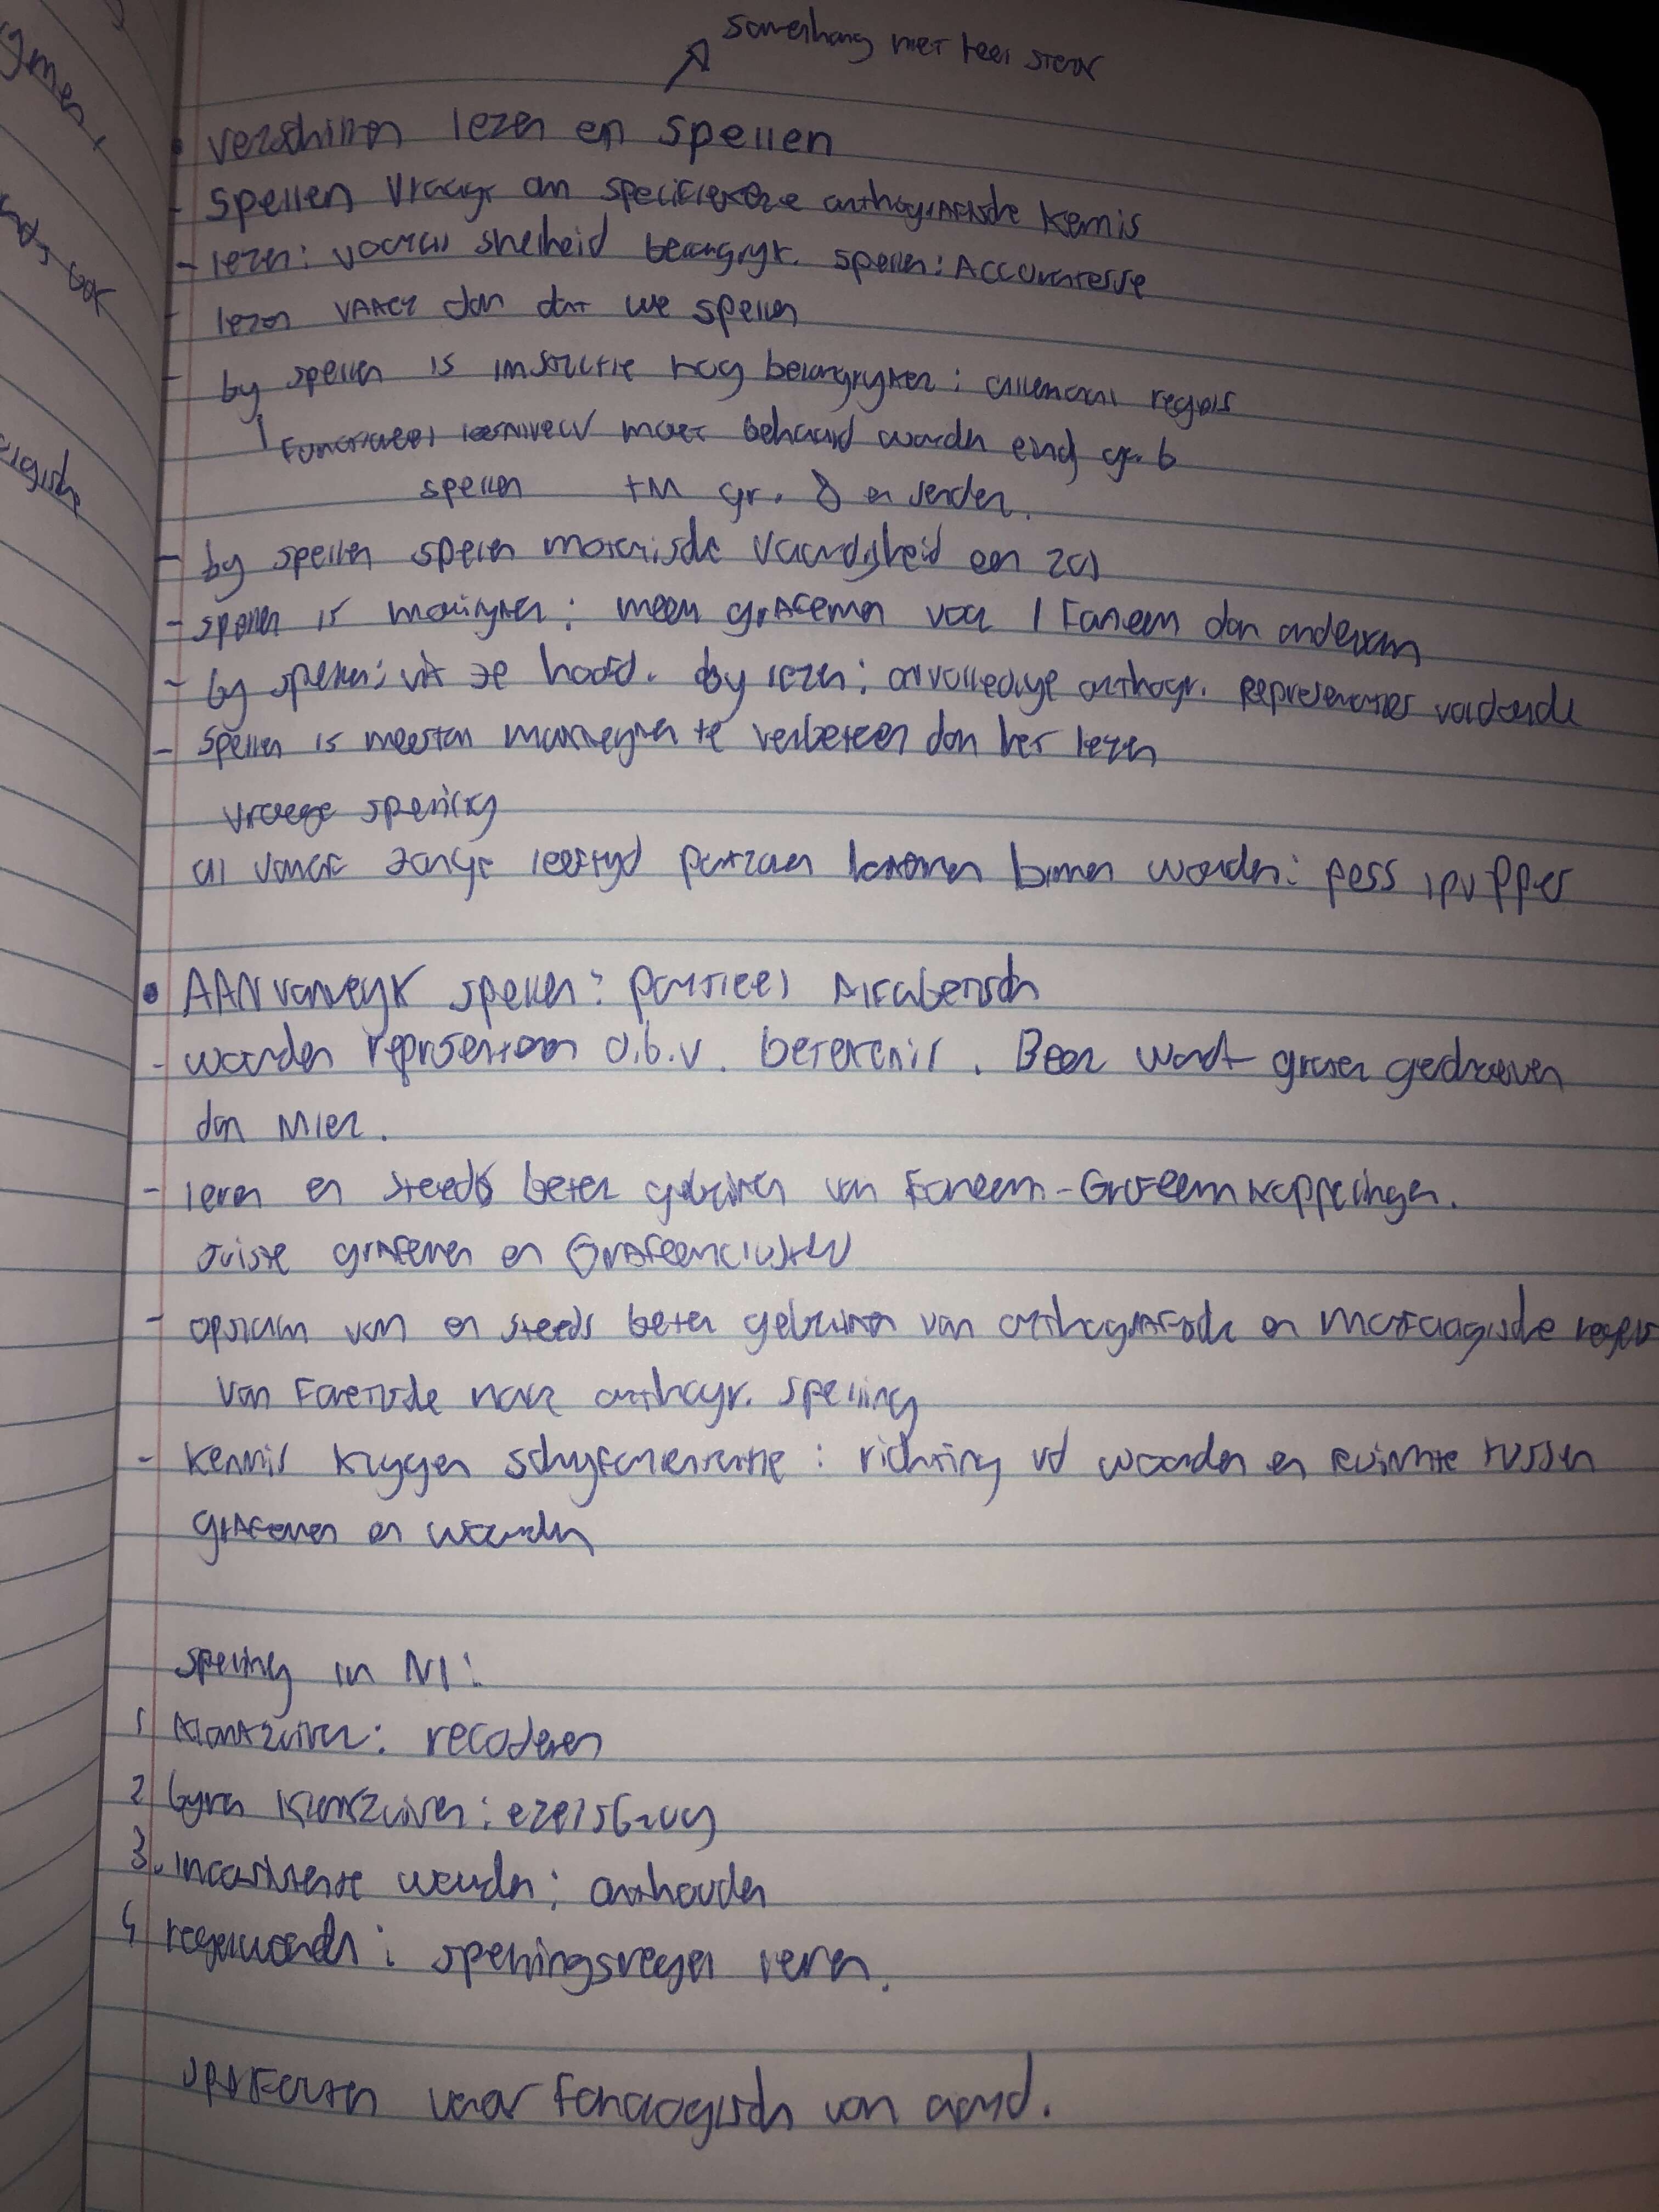 samenhang niet heel sterk
• verschillen lezen en spellen
- spellen vraagt om specifiekere orthografische kennis
- lezen: vooral snelheid belangrijk. spellen: Accuratesse
- lezen vaker dan dat we spellen
- bij spellen is instructie nog belangrijker: allemaal regels
Functioneel leesniveau moet behaald worden eind gr. 6
spellen t/m gr. 8 en verder.
- bij spellen spelen motorische vaardigheid een rol
- spellen is moeilijker: meer grafemen voor 1 Foneem dan andersom
- bij spellen: uit je hoofd. bij lezen: onvolledige orthogr. representaties voldoende
- spellen is meestal moeilijker te verbeteren dan het lezen
vroege spelling
al vanaf jonge leeftijd patronen herkennen binnen woorden: pess ipv ppes
• AANvankelijk spellen: partieel Alfabetisch
- woorden representeren o.b.v. betekenis. Beer wordt groter geschreven
dan Mier.
- leren en steeds beter gebruiken van Foneem-Grafeemkoppelingen.
juiste grafemen en Grafeemclusters
- opslaan van en steeds beter gebruiken van orthografische en morfologische regels
van Fonetische naar orthogr. spelling
- kennis krijgen schrijforientatie: richting vd woorden en ruimte tussen
grafemen en woorden
spelling in Nl:
1 klankzuiver: recoderen
2 bijna klankzuiver: ezelsbrug
3. inconsistente woorden: onthouden
4 regelwoorden: spellingsregel leren.
spelfouten vaak Fonologisch van aard.